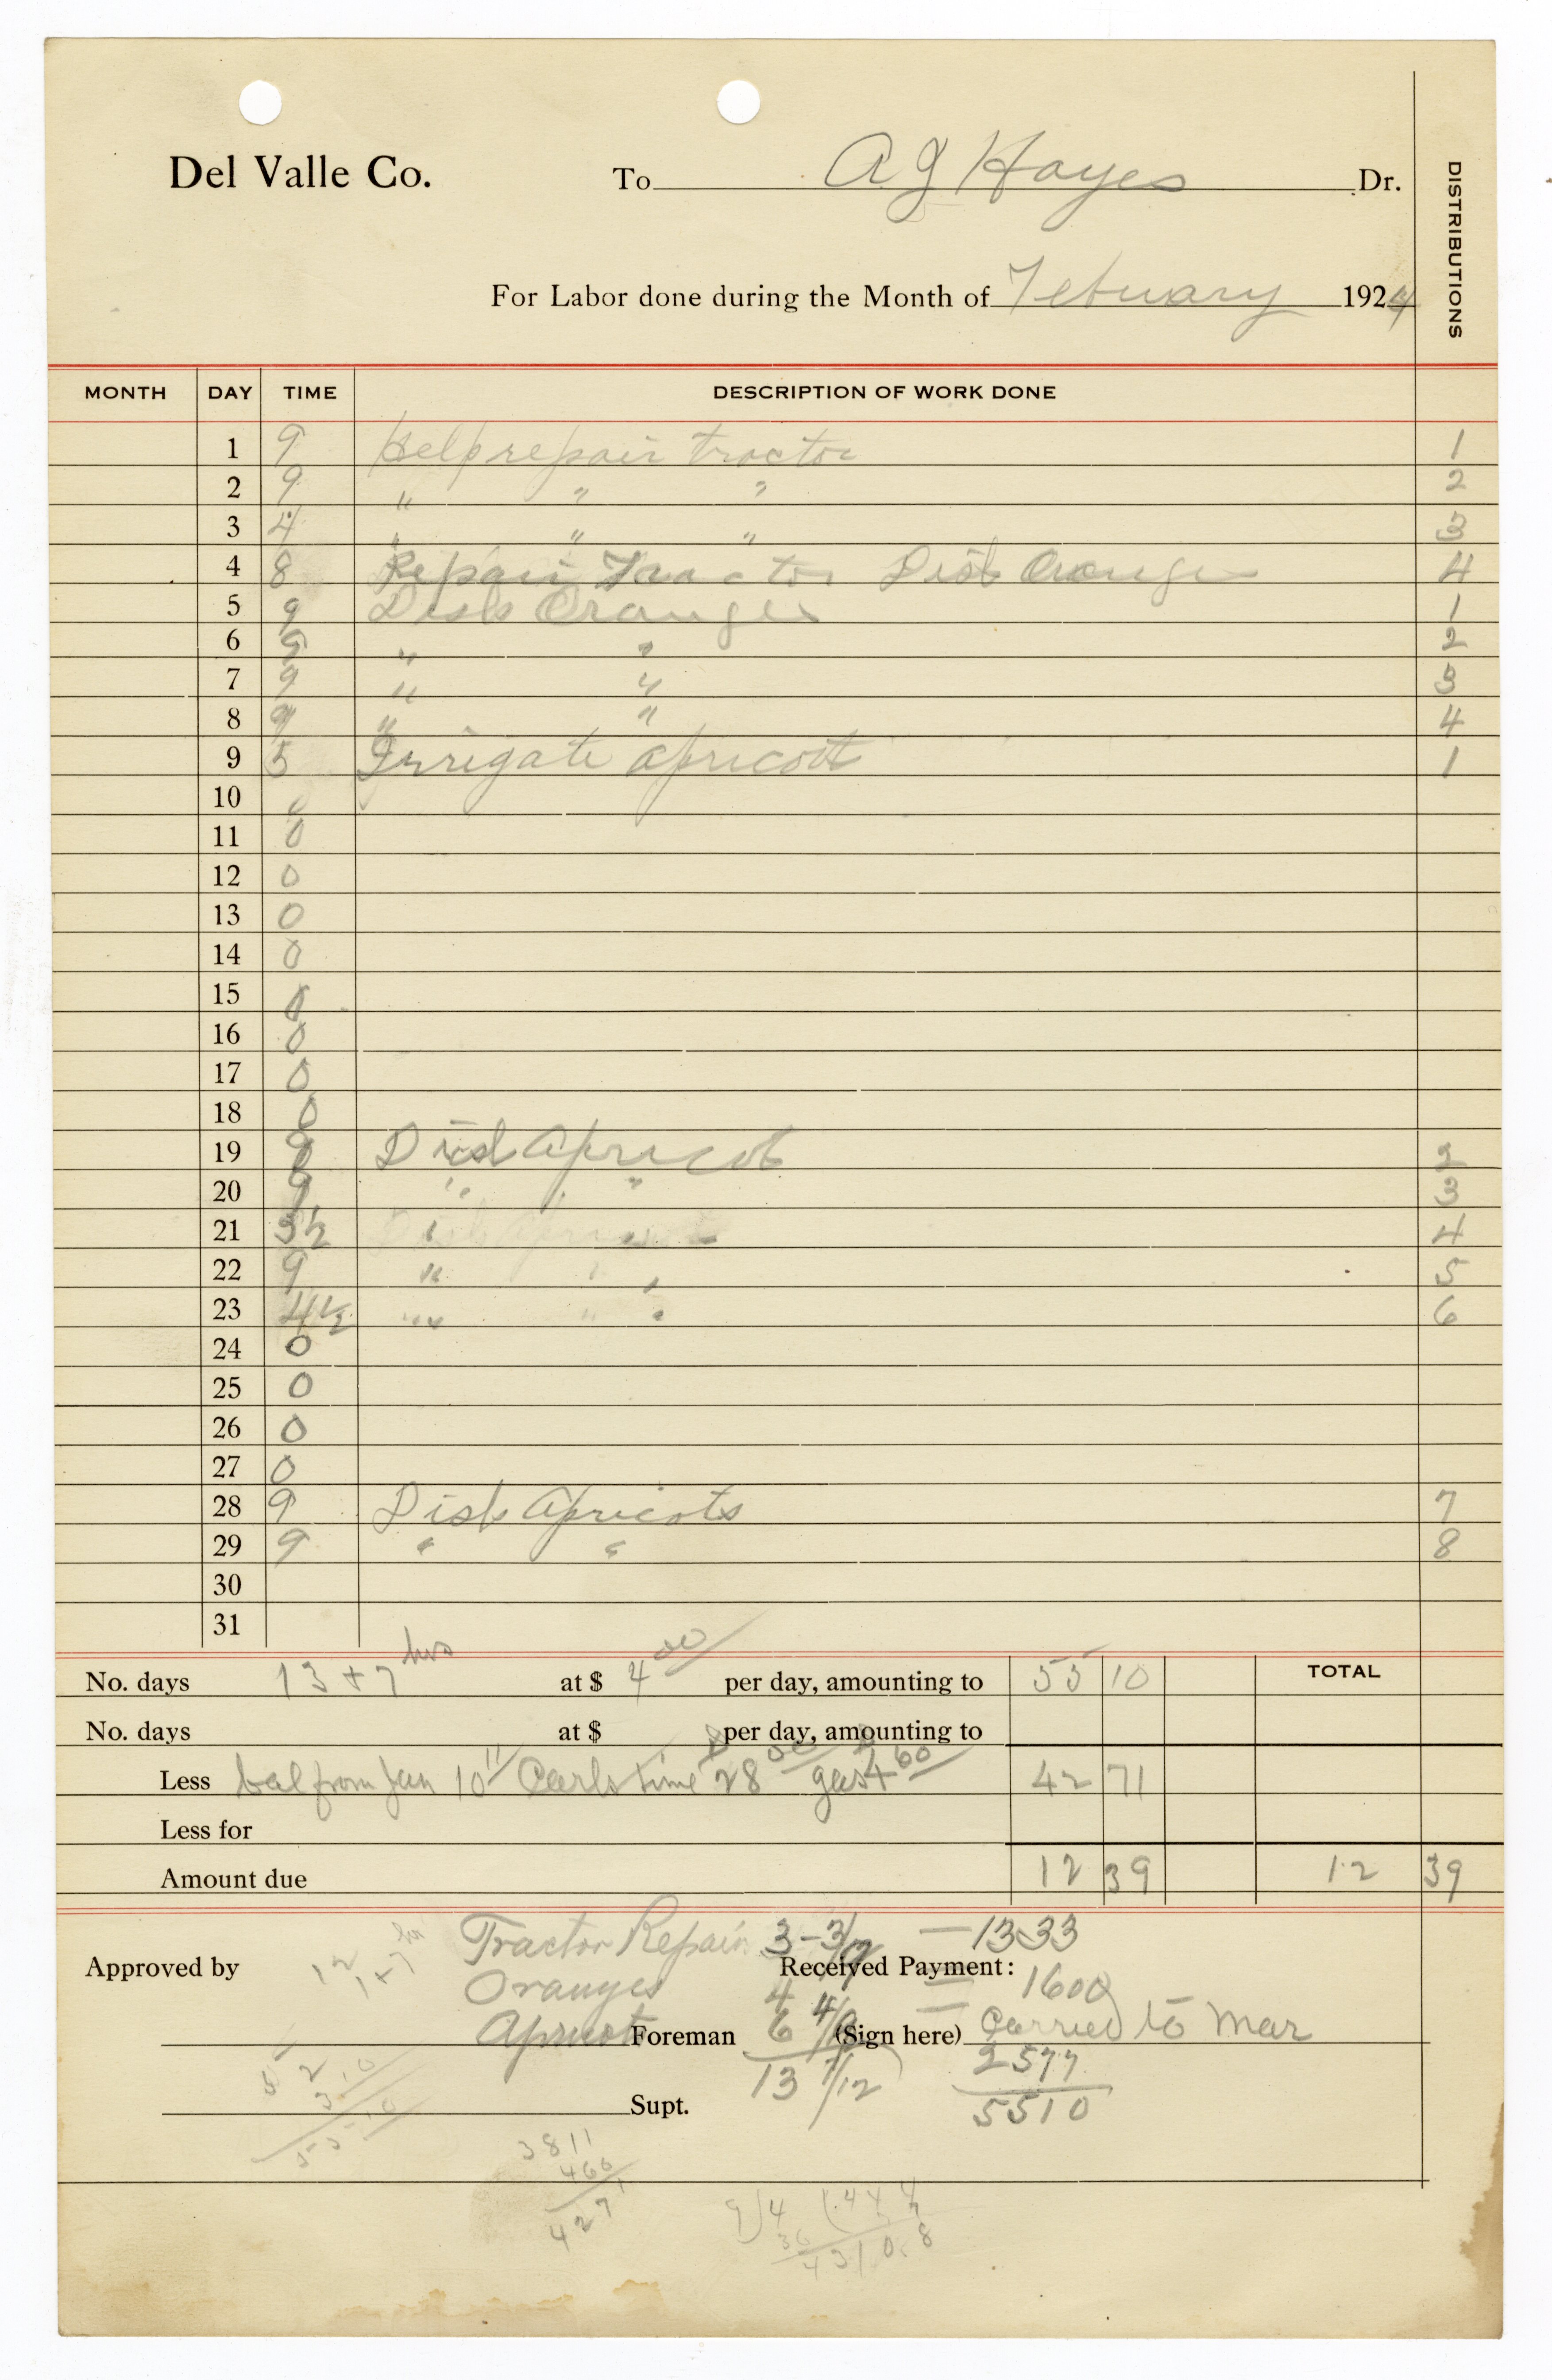 Del Valle Co. To A G Hayes Dr.
DISTRIBUTIONS
For Labor done during the Month of Febuary 1924
MONTH DAY TIME DESCRIPTION OF WORK DONE
1 9 Help repair tractor 1
2 9 " " " 2
3 4 " " " 3
4 8 Repair Tractor Disk Orange 4
5 9 Disk Oranges 1
6 9 " " 2
7 9 " " 3
8 9 " " 4
9 5 Irrigate apricott 1
10 0
11 0
12 0
13 0
14 0
15 0
16 0
17 0
18 0
19 9 Disk Apricot 2
20 9 " " 3
21 3½ Disk Apricot 4
22 9 " " 5
23 4½ " " 6
24 0
25 0
26 0
27 0
28 9 Disk Apricots 7
29 9 " " 8
30
31
No. days 13 + 7 hrs at $ 4 00 per day, amounting to 55 10 TOTAL
No. days at $ per day, amounting to
Less bal from Jan 10 11 Carls time $28 00 gas $4 60 42 71
Less for
Amount due 12 39 12 39
Tractor Repair 3-3/9 — 1333
Approved by 12 1+7 hr Received Payment:
Oranges 4 = 1600
Apricot Foreman 6 4/9 (Sign here) Carried to Mar
2577
13 7/12 5510
52
3.10
55.10
Supt.
3811
460
4271
9)4 (.444
36 7
4 310.8